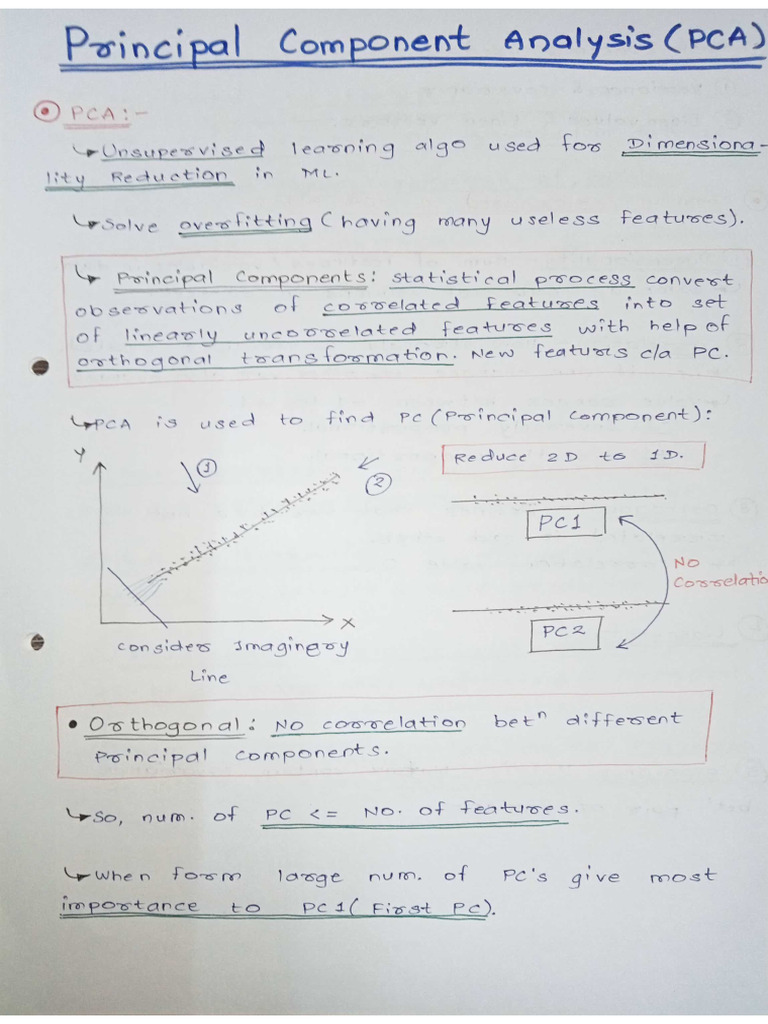 Principal Component Analysis (PCA)
PCA:-
↳ Unsupervised learning algo used for Dimensiona-
lity Reduction in ML.
↳ Solve overfitting (having many useless features).
↳ Principal Components: statistical process convert
observations of correlated features into set
of linearly uncorrelated features with help of
orthogonal transformation. New features c/a PC.
↳ PCA is used to find PC (Principal Component):
Y
1
2
X
Consider Imaginery
Line
Reduce 2D to 1D.
PC1
NO
Correlatio
PC2
• Orthogonal: No correlation betⁿ different
Principal components.
↳ So, num. of PC <= No. of features.
↳ When form large num. of PC's give most
importance to PC1 (First PC).